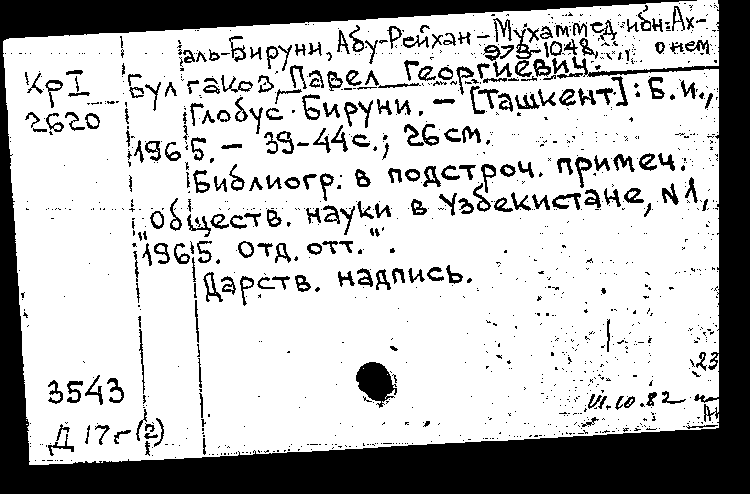 аль-Бируни, Абу-Рейхан-Мухаммед ибн-Ах-
973-1048, о нем
КрI Булгаков, Павел Георгиевич.
2620 Глобус Бируни. – [Ташкент]: Б.и.,
1965. – 39-44 с.; 26 см.
Библиогр. в подстроч. примеч.
"Обществ. науки в Узбекистане, N1,
1965. Отд. отт.".
Дарств. надпись.
23
3543
82
Д 17г (2)